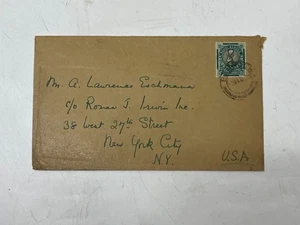 Mr. A. Lawrence Eschmann
c/o Roman J. Irwin Inc.
38 West 27th Street
New York City
N.Y.
U.S.A.